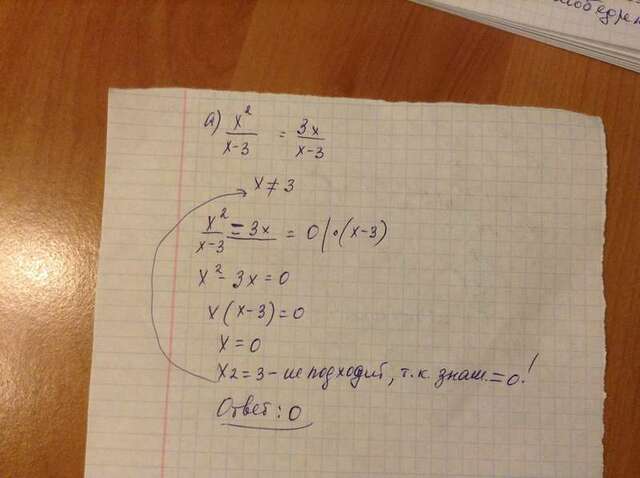 а) x²/x-3 = 3x/x-3
x ≠ 3
x² = 3x/x-3 = 0 | • (x-3)
x² - 3x = 0
x (x-3) = 0
x = 0
x2 = 3 - не подходит, т.к. знам. = 0!
Ответ: 0